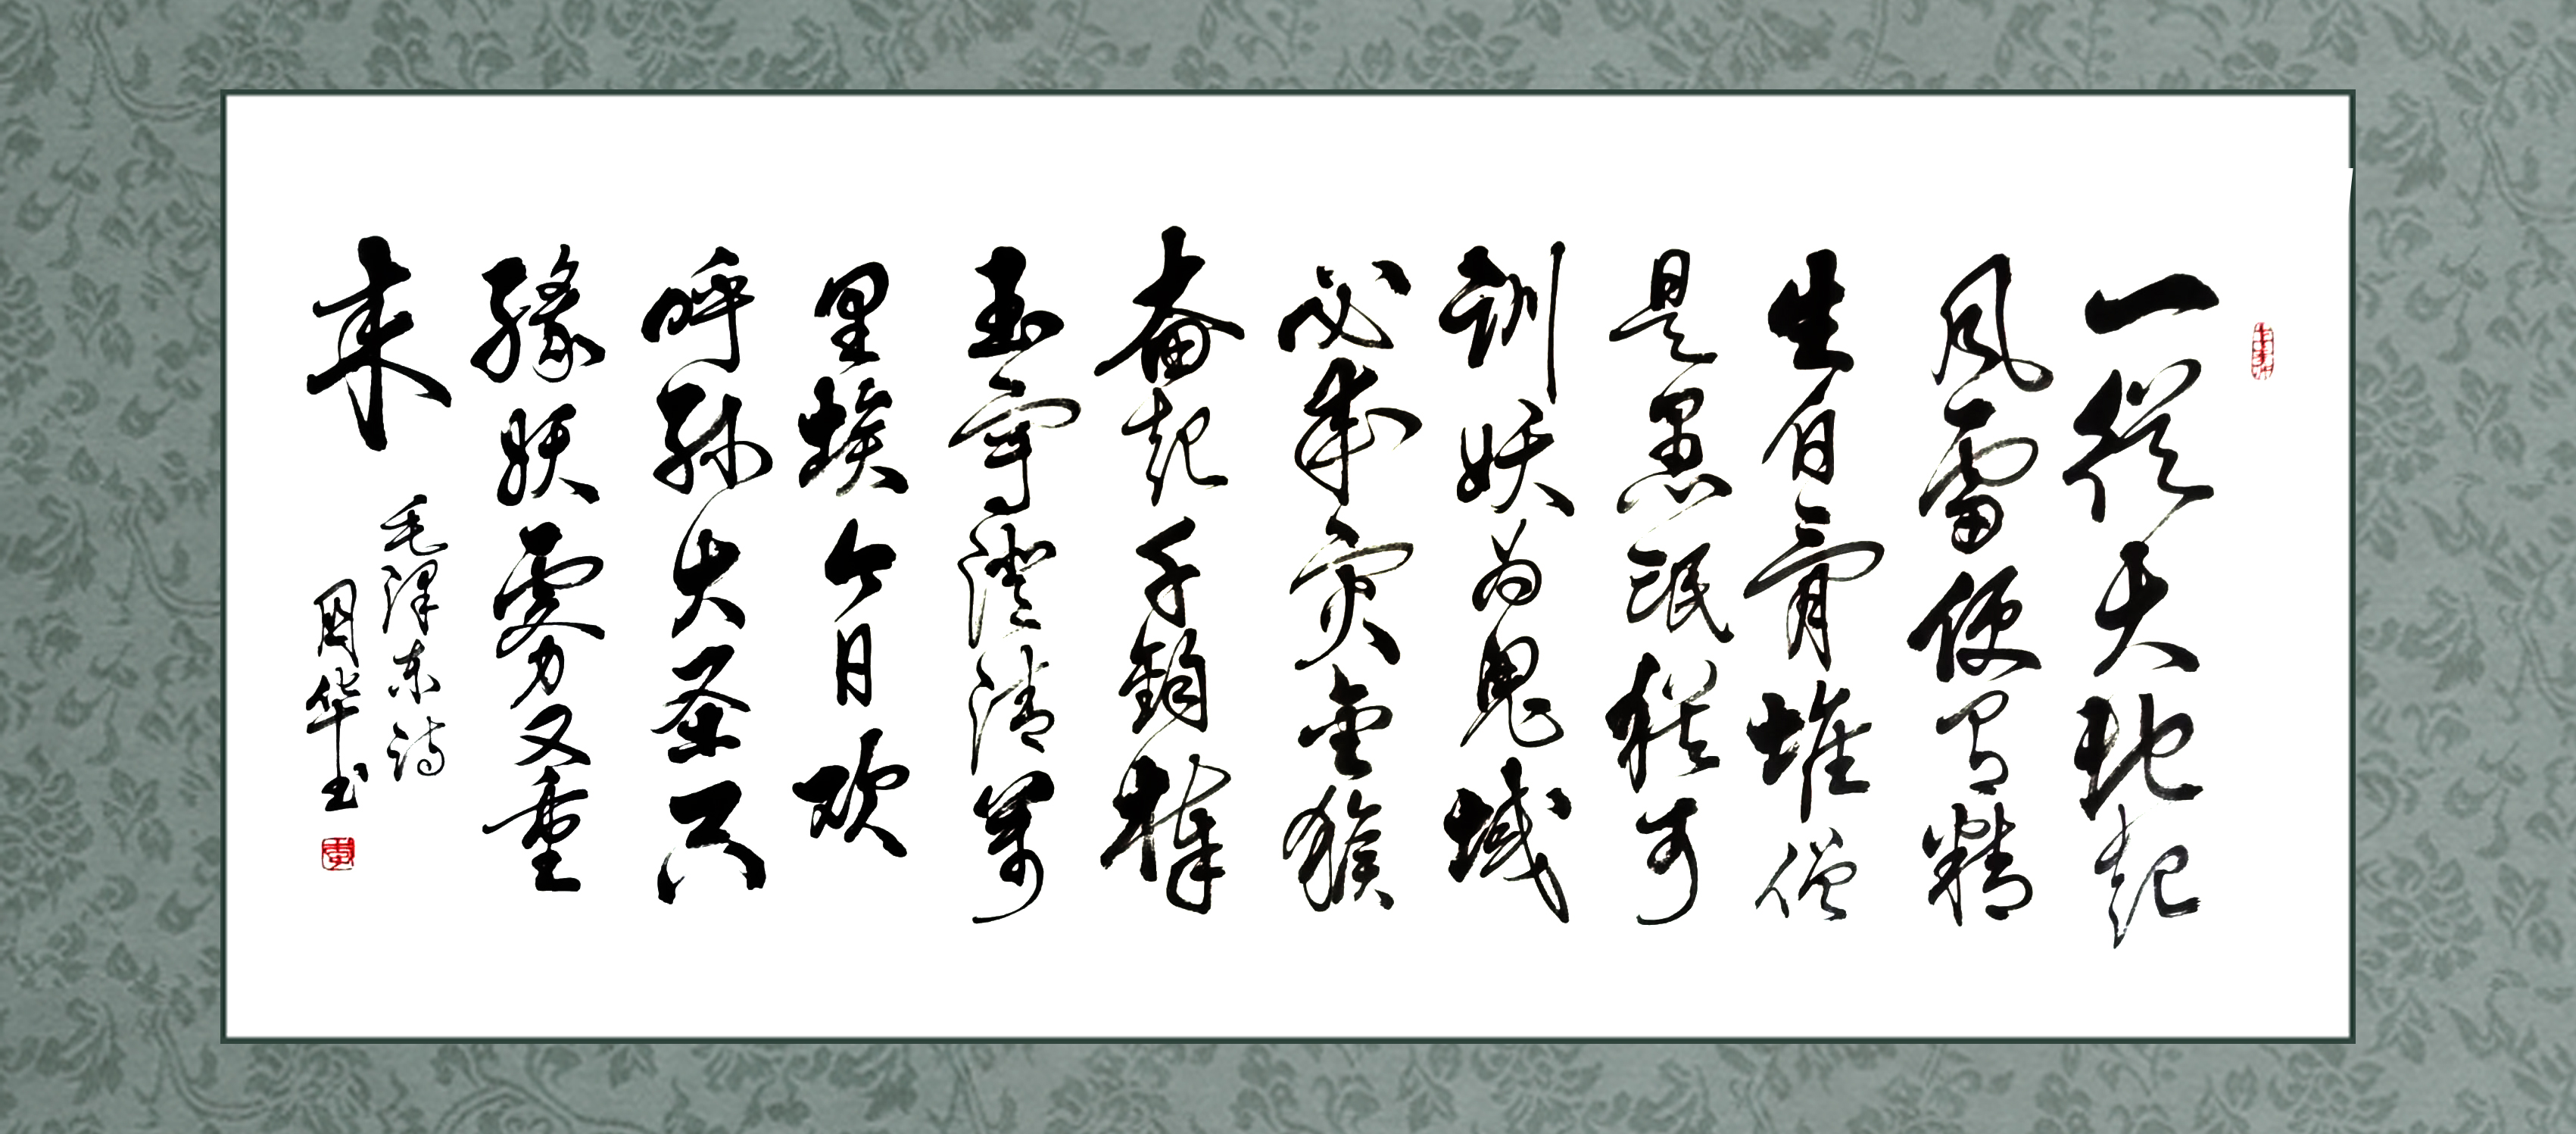 一從大地起
风雷便有精
生白骨堆僧
是愚氓犹可
训妖为鬼蜮
必成灾金猴
奋起千钧棒
玉宇澄清萬
里埃今日欢
呼孙大圣只
缘妖雾又重
来
毛泽东诗
国华书